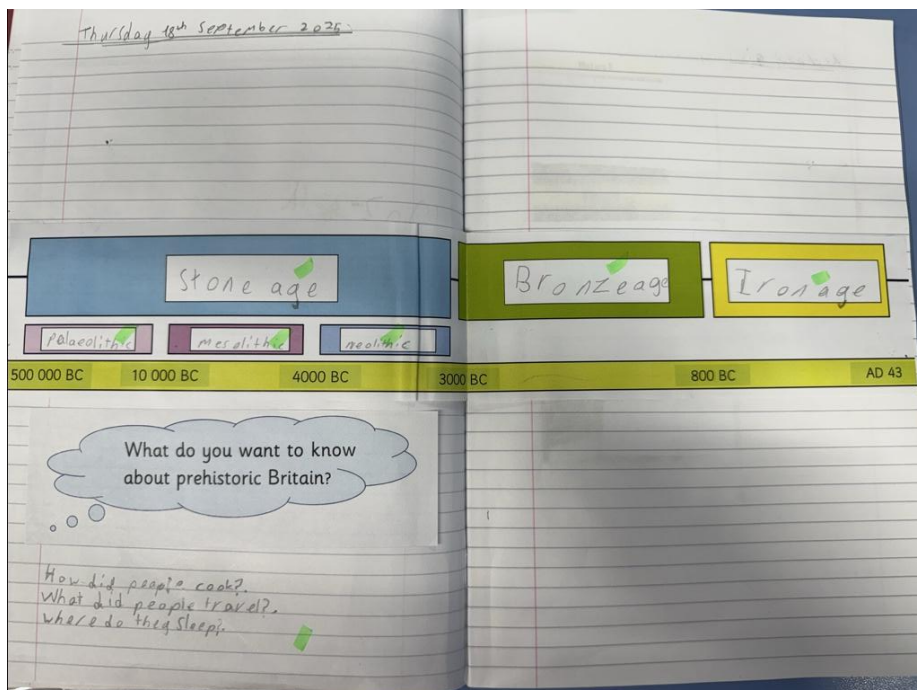 Thursday 18th September 2025.
Stone age
Bronze age
Iron age
Palaeolithic
mesolithic
neolithic
500 000 BC 10 000 BC 4000 BC 3000 BC 800 BC AD 43
What do you want to know
about prehistoric Britain?
How did people cook?.
What did people travel?.
where do they Sleep?.